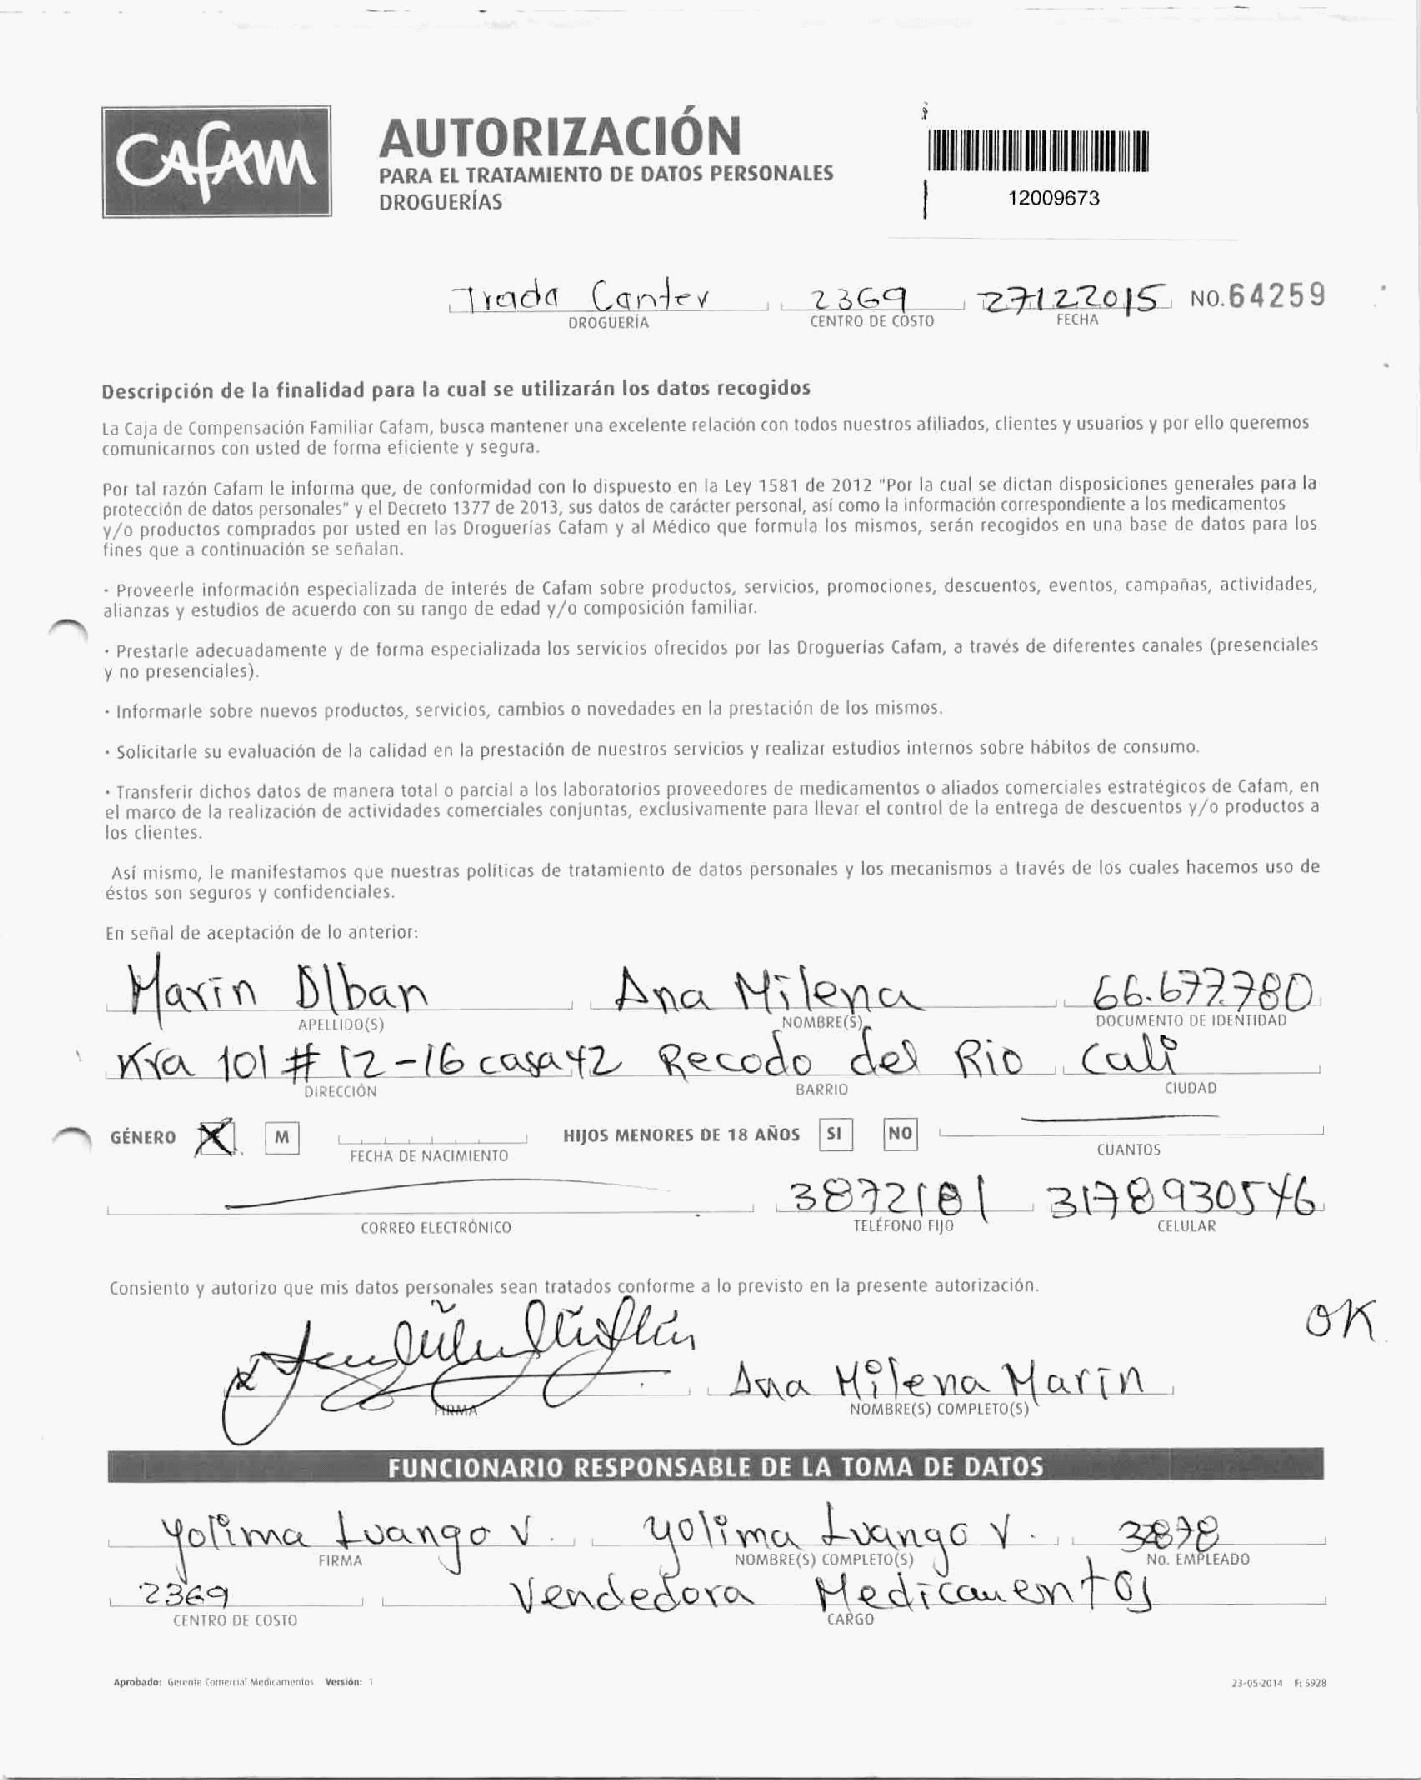 CAFAM
AUTORIZACIÓN
PARA EL TRATAMIENTO DE DATOS PERSONALES
DROGUERÍAS
12009673
Trada Canter 2369 27122015 NO.64259
DROGUERÍA CENTRO DE COSTO FECHA
Descripción de la finalidad para la cual se utilizarán los datos recogidos
La Caja de Compensación Familiar Cafam, busca mantener una excelente relación con todos nuestros afiliados, clientes y usuarios y por ello queremos
comunicarnos con usted de forma eficiente y segura.
Por tal razón Cafam le informa que, de conformidad con lo dispuesto en la Ley 1581 de 2012 "Por la cual se dictan disposiciones generales para la
protección de datos personales" y el Decreto 1377 de 2013, sus datos de carácter personal, así como la información correspondiente a los medicamentos
y/o productos comprados por usted en las Droguerías Cafam y al Médico que formula los mismos, serán recogidos en una base de datos para los
fines que a continuación se señalan.
· Proveerle información especializada de interés de Cafam sobre productos, servicios, promociones, descuentos, eventos, campañas, actividades,
alianzas y estudios de acuerdo con su rango de edad y/o composición familiar.
· Prestarle adecuadamente y de forma especializada los servicios ofrecidos por las Droguerías Cafam, a través de diferentes canales (presenciales
y no presenciales).
· Informarle sobre nuevos productos, servicios, cambios o novedades en la prestación de los mismos.
· Solicitarle su evaluación de la calidad en la prestación de nuestros servicios y realizar estudios internos sobre hábitos de consumo.
· Transferir dichos datos de manera total o parcial a los laboratorios proveedores de medicamentos o aliados comerciales estratégicos de Cafam, en
el marco de la realización de actividades comerciales conjuntas, exclusivamente para llevar el control de la entrega de descuentos y/o productos a
los clientes.
Así mismo, le manifestamos que nuestras políticas de tratamiento de datos personales y los mecanismos a través de los cuales hacemos uso de
éstos son seguros y confidenciales.
En señal de aceptación de lo anterior:
Marin Alban Ana Milena 66.677.780
APELLIDO(S) NOMBRE(S) DOCUMENTO DE IDENTIDAD
Kra 101 # 12-16 casa 42 Recodo del Rio Cali
DIRECCIÓN BARRIO CIUDAD
GÉNERO X M HIJOS MENORES DE 18 AÑOS SI NO
FECHA DE NACIMIENTO CUANTOS
3872181 3178930546
CORREO ELECTRÓNICO TELÉFONO FIJO CELULAR
Consiento y autorizo que mis datos personales sean tratados conforme a lo previsto en la presente autorización.
OK
Ana Milena Marin
FIRMA NOMBRE(S) COMPLETO(S)
FUNCIONARIO RESPONSABLE DE LA TOMA DE DATOS
Yolima Luango V. Yolima Luango V. 3878
FIRMA NOMBRE(S) COMPLETO(S) No. EMPLEADO
2369 Vendedora Medicamentos
CENTRO DE COSTO CARGO
Aprobado: Gerente Comercial Medicamentos Versión: 1 23-05-2014 F: 5928